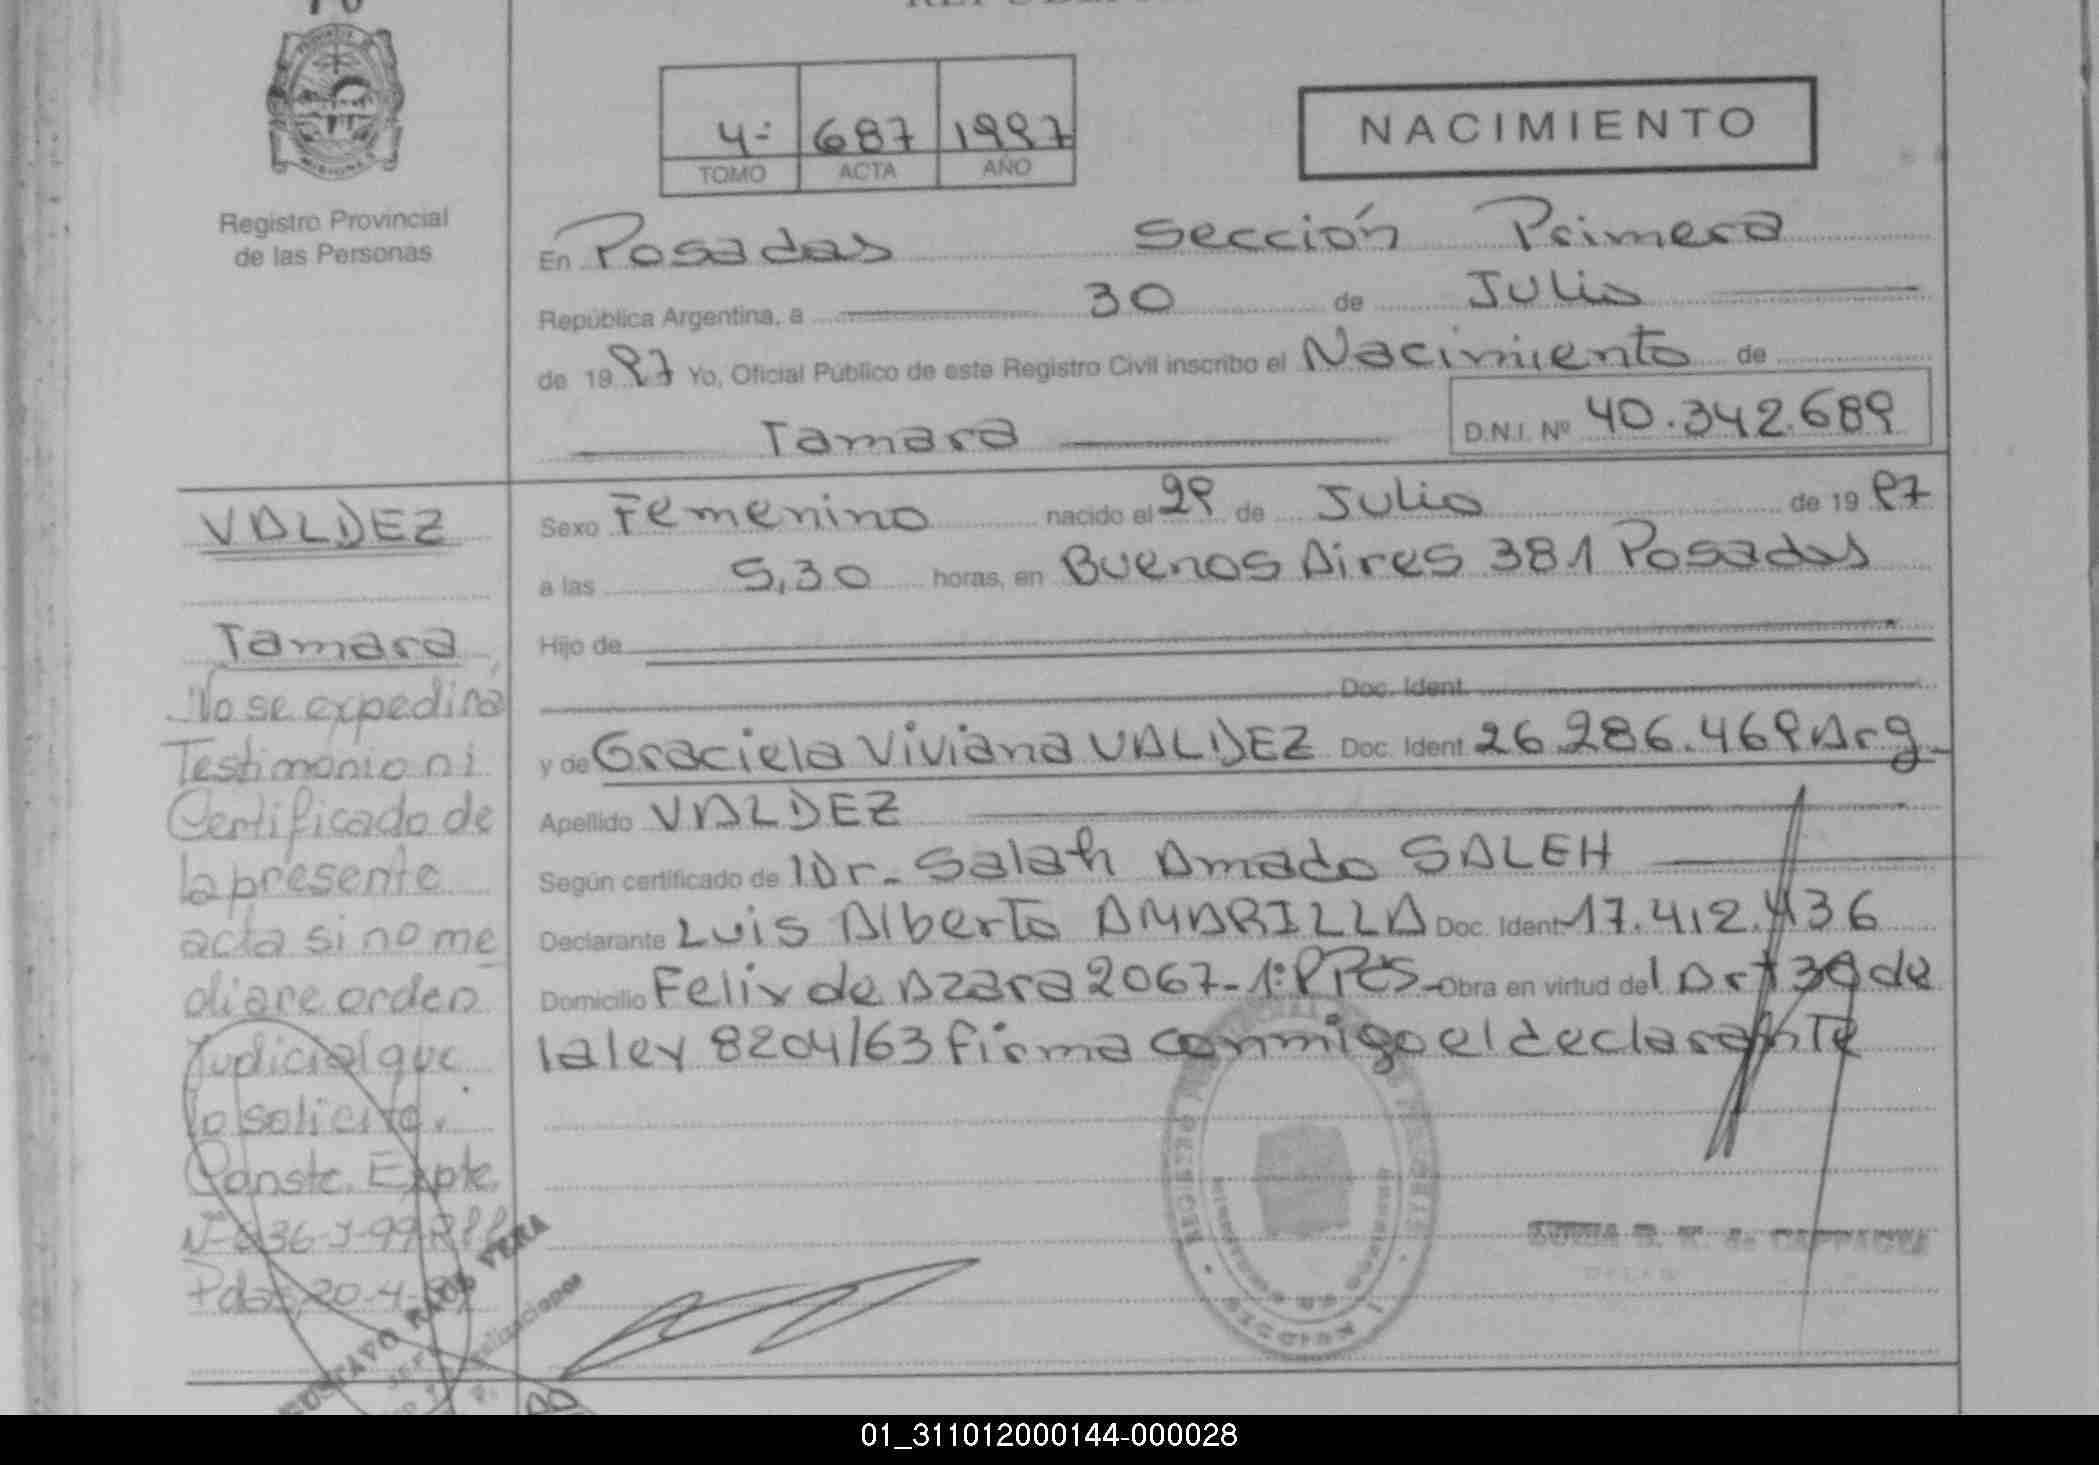 4- 687 1997
TOMO ACTA AÑO
NACIMIENTO
Registro Provincial
de las Personas
En Posadas Sección Primera
República Argentina, a 30 de Julio
de 1997 Yo, Oficial Público de este Registro Civil inscribo el Nacimiento de
Tamara D.N.I. Nº 40.342.689
VALDEZ
Tamara
No se expedirá
Testimonio ni
Certificado de
la presente
acta si no me
diare orden
Judicial que
lo solicite.
Conste. Expte.
Sexo Femenino nacido el 29 de Julio de 1997
a las 5,30 horas, en Buenos Aires 381 Posadas
Hijo de
Doc. Ident.
y de Graciela Viviana VALDEZ Doc. Ident. 26.286.469 Arg.
Apellido VALDEZ
Según certificado de Dr. Salah Amado SALEH
Declarante Luis Alberto AMARILLA Doc. Ident 17.412.436
Domicilio Felix de Azara 2067- Obra en virtud del Art 30 de
la ley 8204/63 firma conmigo el declarante
GUSTAVO VERA
01_311012000144-000028